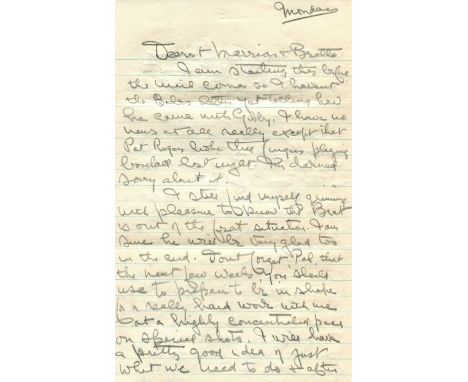 Monday
Dearest Marrion + Bratto
I am starting this before
the mail comes so I havent
the Babes letter yet telling how
he came with Gibby. I have no
news at all really except that
Pat Rogers broke three fingers playing
baseball last night. Im darned
sorry about it.
I still find myself grinning
with pleasure to know the Brat
is out of the first situation. I am
sure he will be very glad too
in the end. Dont forget Pal, that
the next few weeks you should
use to prepare to be in shape
for a really hard work with me
at a highly concentrated pace
on special shots. I will have
a pretty good idea of just
what we need to do + after